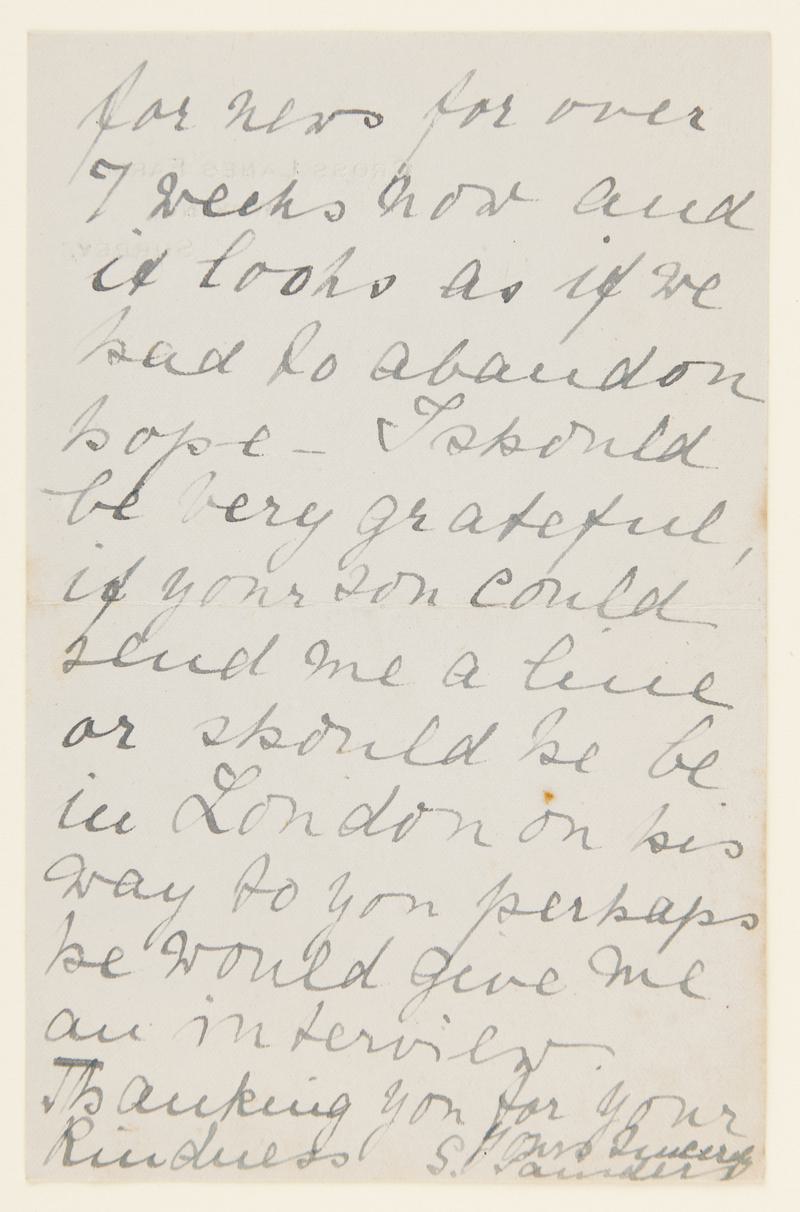 for news for over
7 weeks now and
it looks as if we
had to abandon
hope – I should
be very grateful,
if your son could
send me a line
or should he be
in London on his
way to you perhaps
he would give me
an interview.
Thanking you for your
kindness Yours Sincerely
S. Saunders